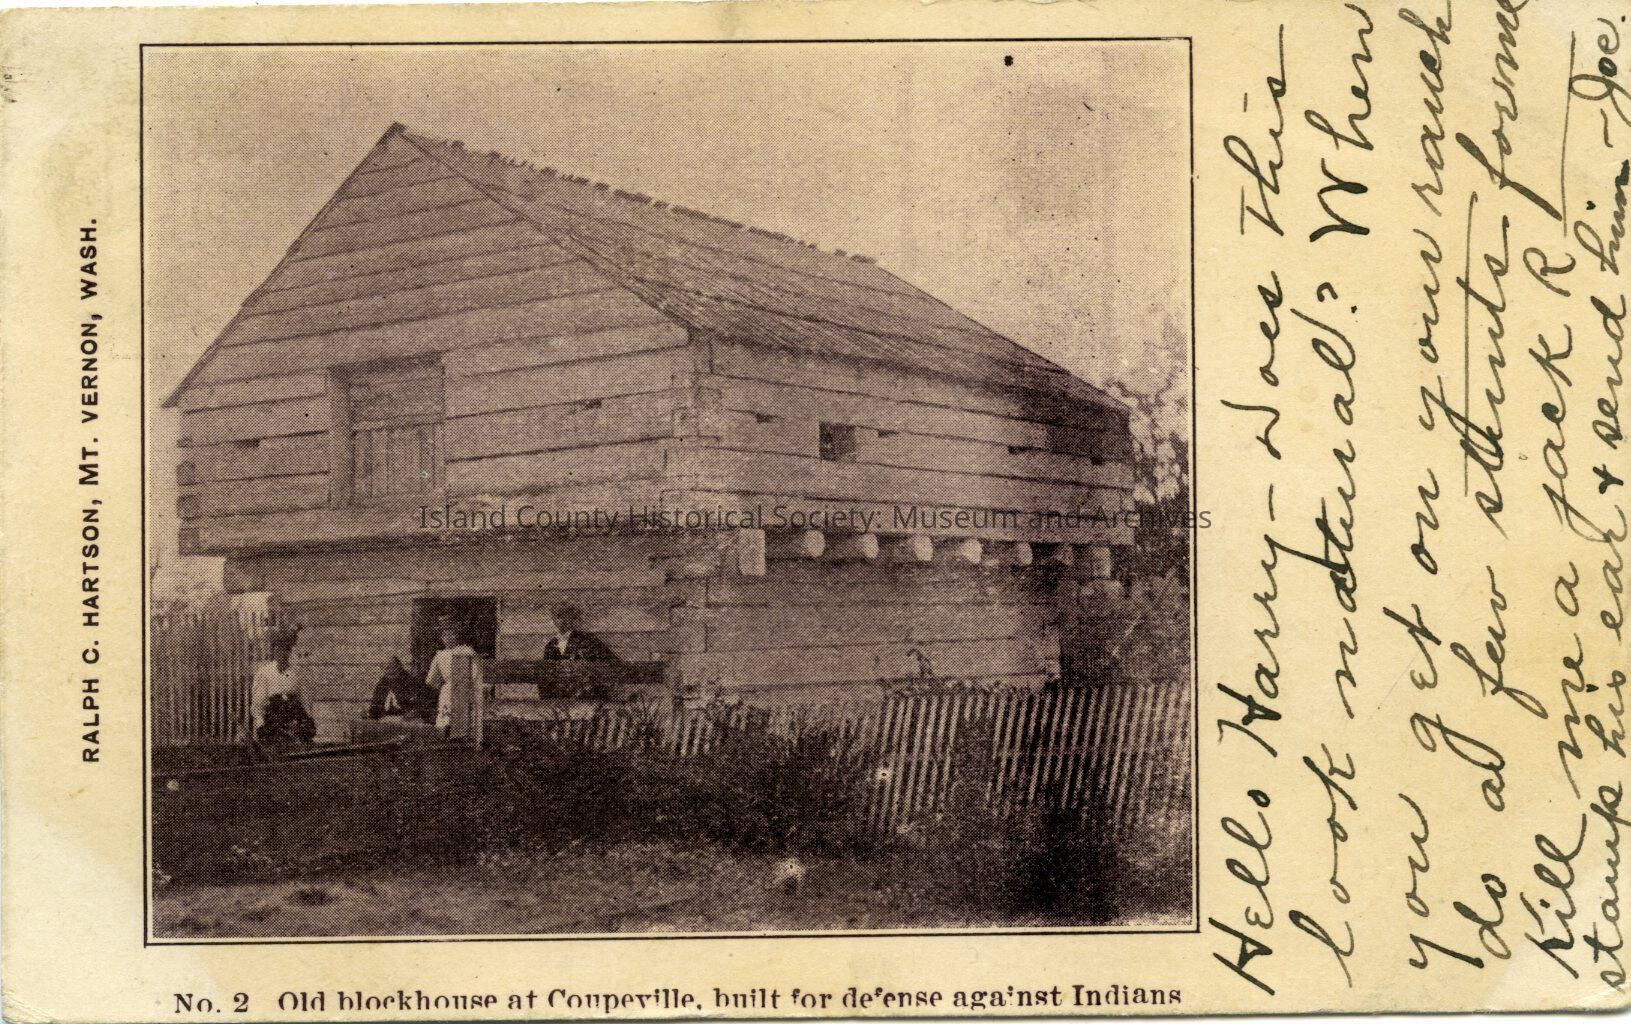 RALPH C. HARTSON, MT. VERNON, WASH.
Island County Historical Society: Museum and Archives
No. 2 Old blockhouse at Coupeville, built for defense against Indians
Hello Harry - Does this
look natural? When
you get on your ranch
do a few stunts for me
Kill me a jack R
stamp his ear & send him - Joe.